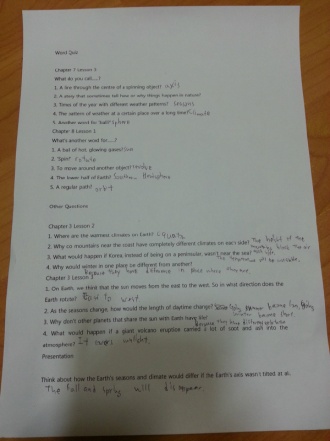 Word Quiz
Chapter 7 Lesson 3
What do you call...?
1. A line through the centre of a spinning object? axis
2. A story that sometimes tell how or why things happen in nature?
3. Times of the year with different weather patterns? Seasons
4. The pattern of weather at a certain place over a long time? climate
5. Another word for 'ball'? sphere
Chapter 8 Lesson 1
What's another word for...?
1. A ball of hot, glowing gases? Sun
2. 'Spin'? rotate
3. To move around another object? revolve
4. The lower half of Earth? Southern Hemisphere
5. A regular path? orbit
Other Questions
Chapter 3 Lesson 2
1. Where are the warmest climates on Earth? Equator
2. Why so mountains near the coast have completely different climates on each side? The height of the mountains block the air
3. What would happen if Korea instead of being on a peninsular, wasn't near the sea?
The temperature will be
4. Why would winter in one place be different from another?
because they have difference in place where they are.
Chapter 3 Lesson 3
1. On Earth, we think that the sun moves from the east to the west. So in what direction does the
Earth rotate? East to west.
2. As the seasons change, how would the length of daytime change?
3. Why don't other planets that share the sun with Earth have life?
Because they have different
4. What would happen if a giant volcano eruption carried a lot of soot and ash into the
atmosphere? It covers sunlight.
Presentation
Think about how the Earth's seasons and climate would differ if the Earth's axis wasn't tilted at all.
The fall and spring will disappear